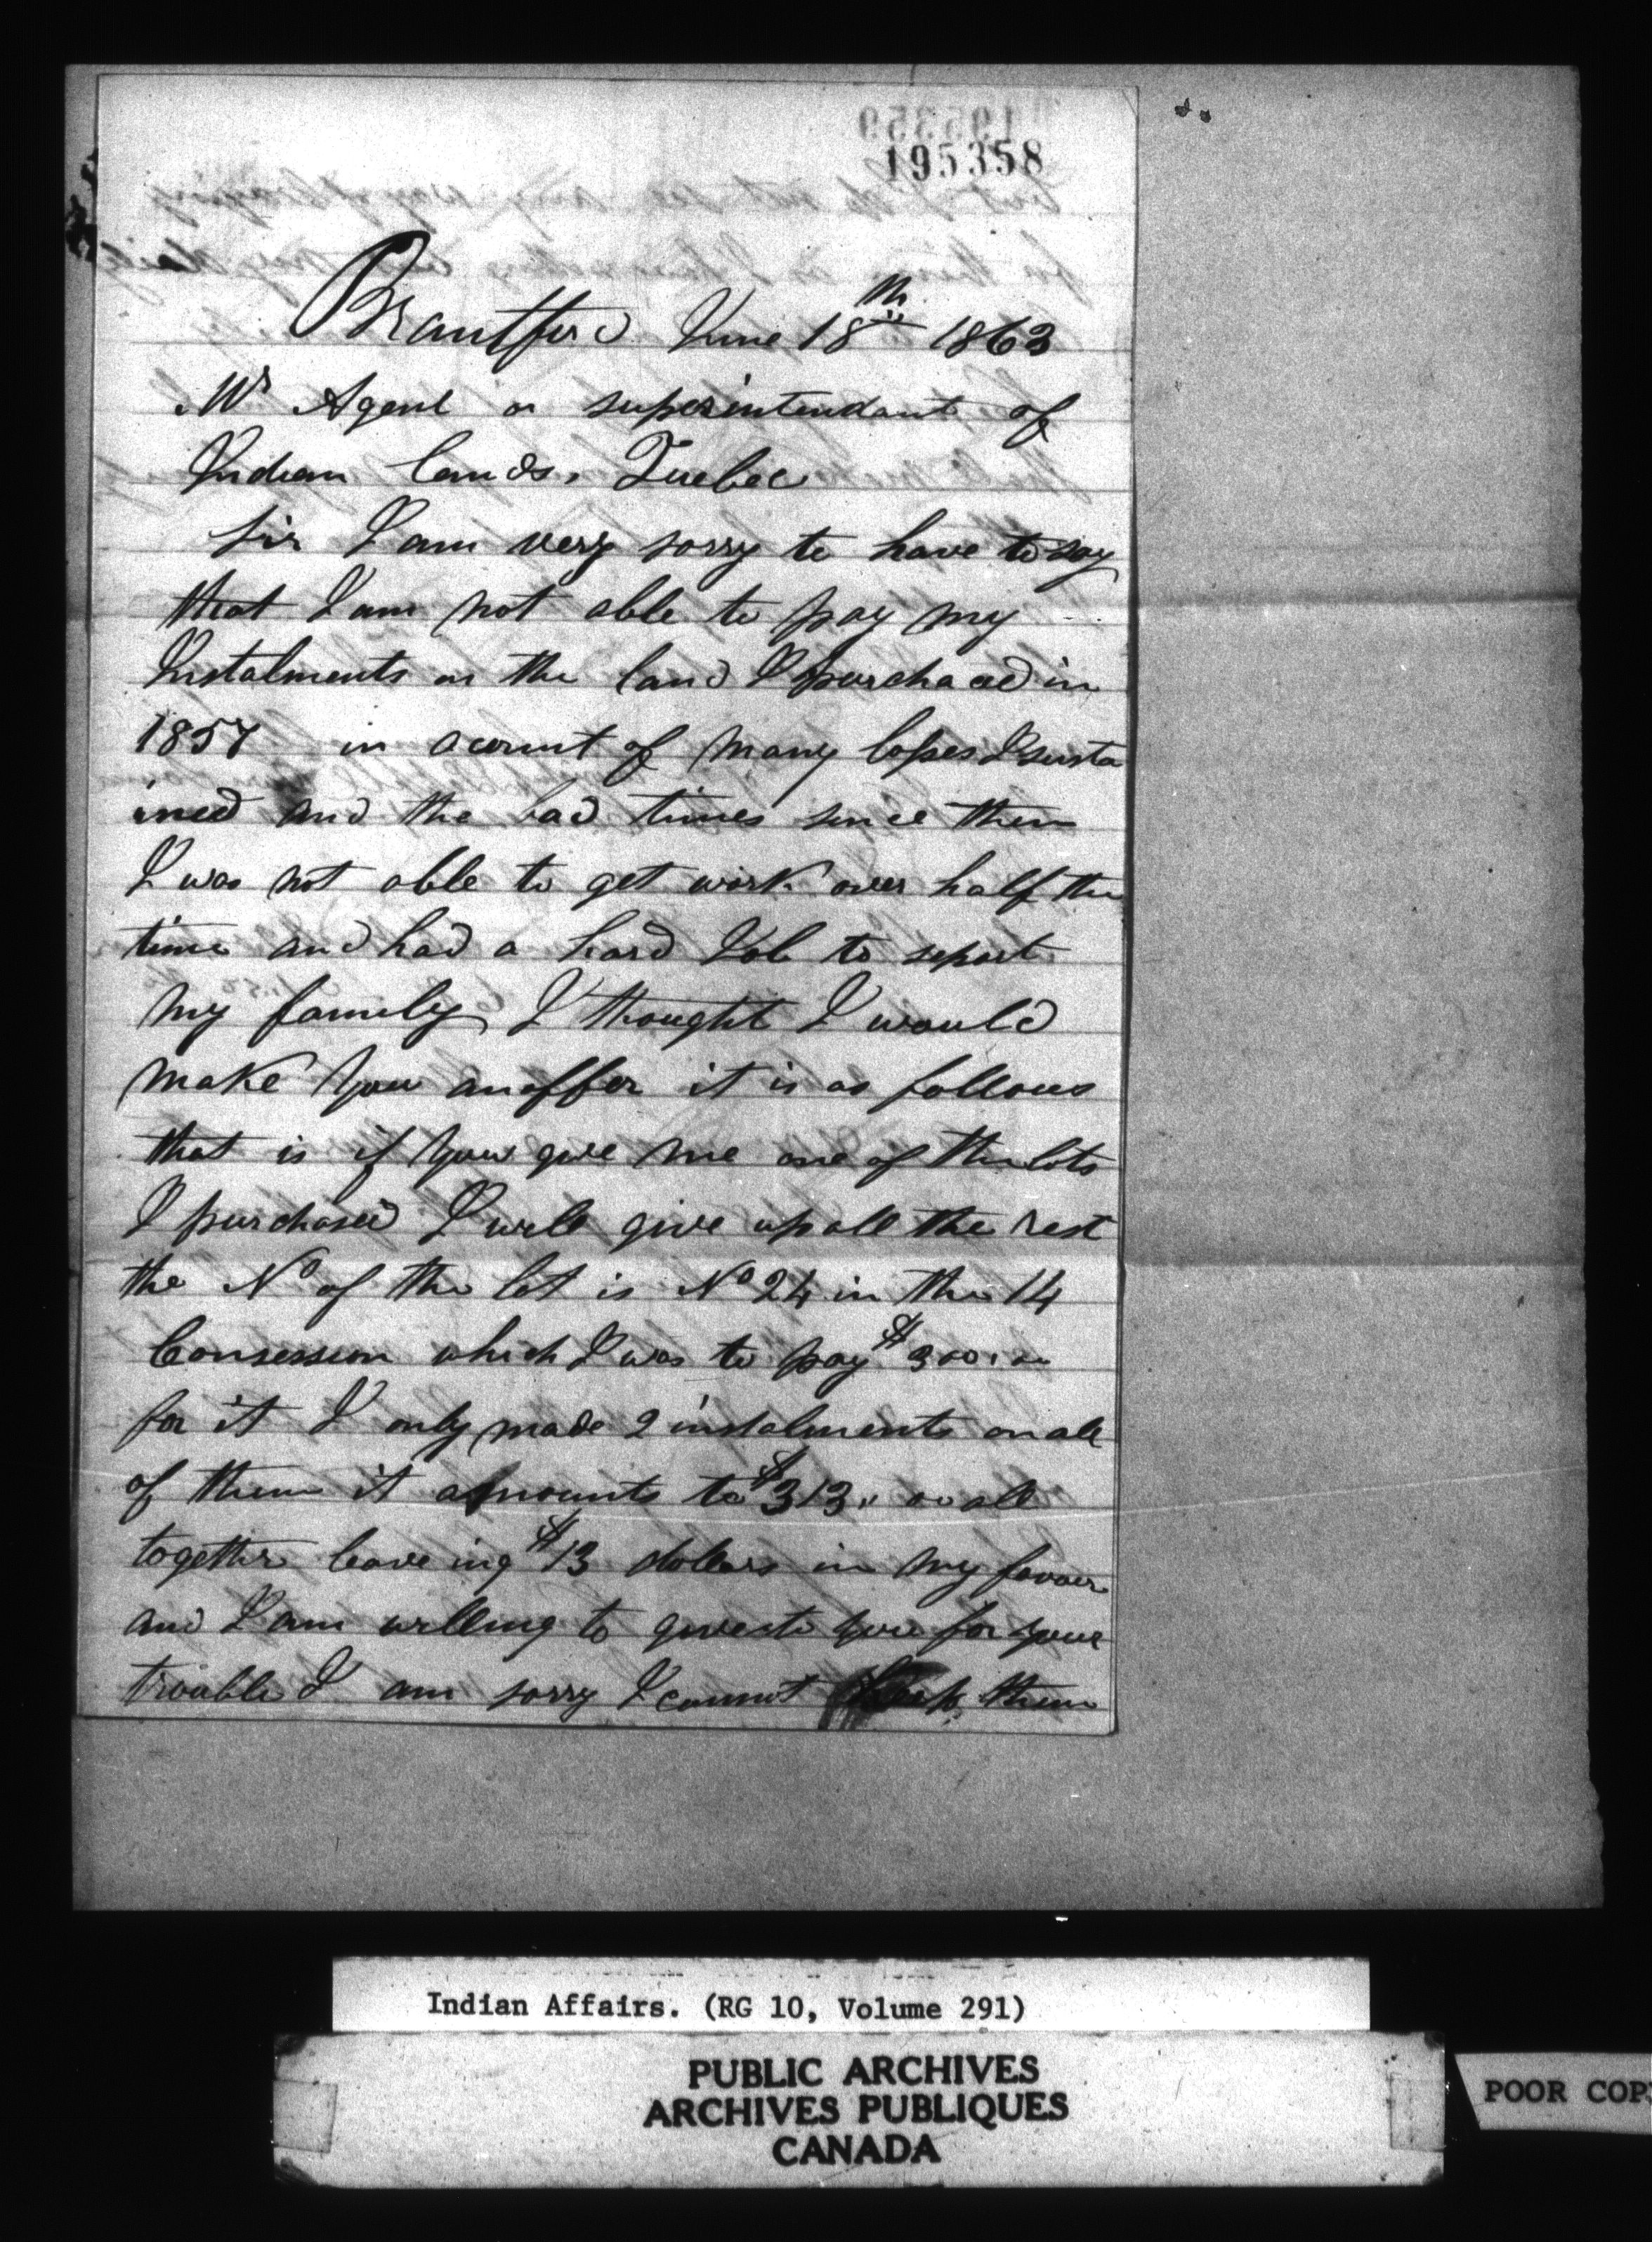 195359
195358
Brantford June 18th 1863
Mr Agent or superintendant of
Indian lands, Quebec
Sir I am very sorry to have to say
that I am not able to pay my
Instalments on the land I purchaced in
1857 in acount of many losses I susta
ined and the bad times since then
I was not able to get work over half the
time and had a hard Job to suport
my family I thought I would
make you an offer it is as follows
that is if you give me one of the lots
I purchased I will give up all the rest
the No of the lot is No 24 in the 14
Consession which I was to pay $300.00
for it I only made 2 instalments on all
of them it amounts to $313.. 00 all
together leaveing $13 dollars in my favour
and I am willing to give to you for your
trouble I am sorry I cannot keep them
Indian Affairs. (RG 10, Volume 291)
PUBLIC ARCHIVES
ARCHIVES PUBLIQUES
CANADA
POOR COP